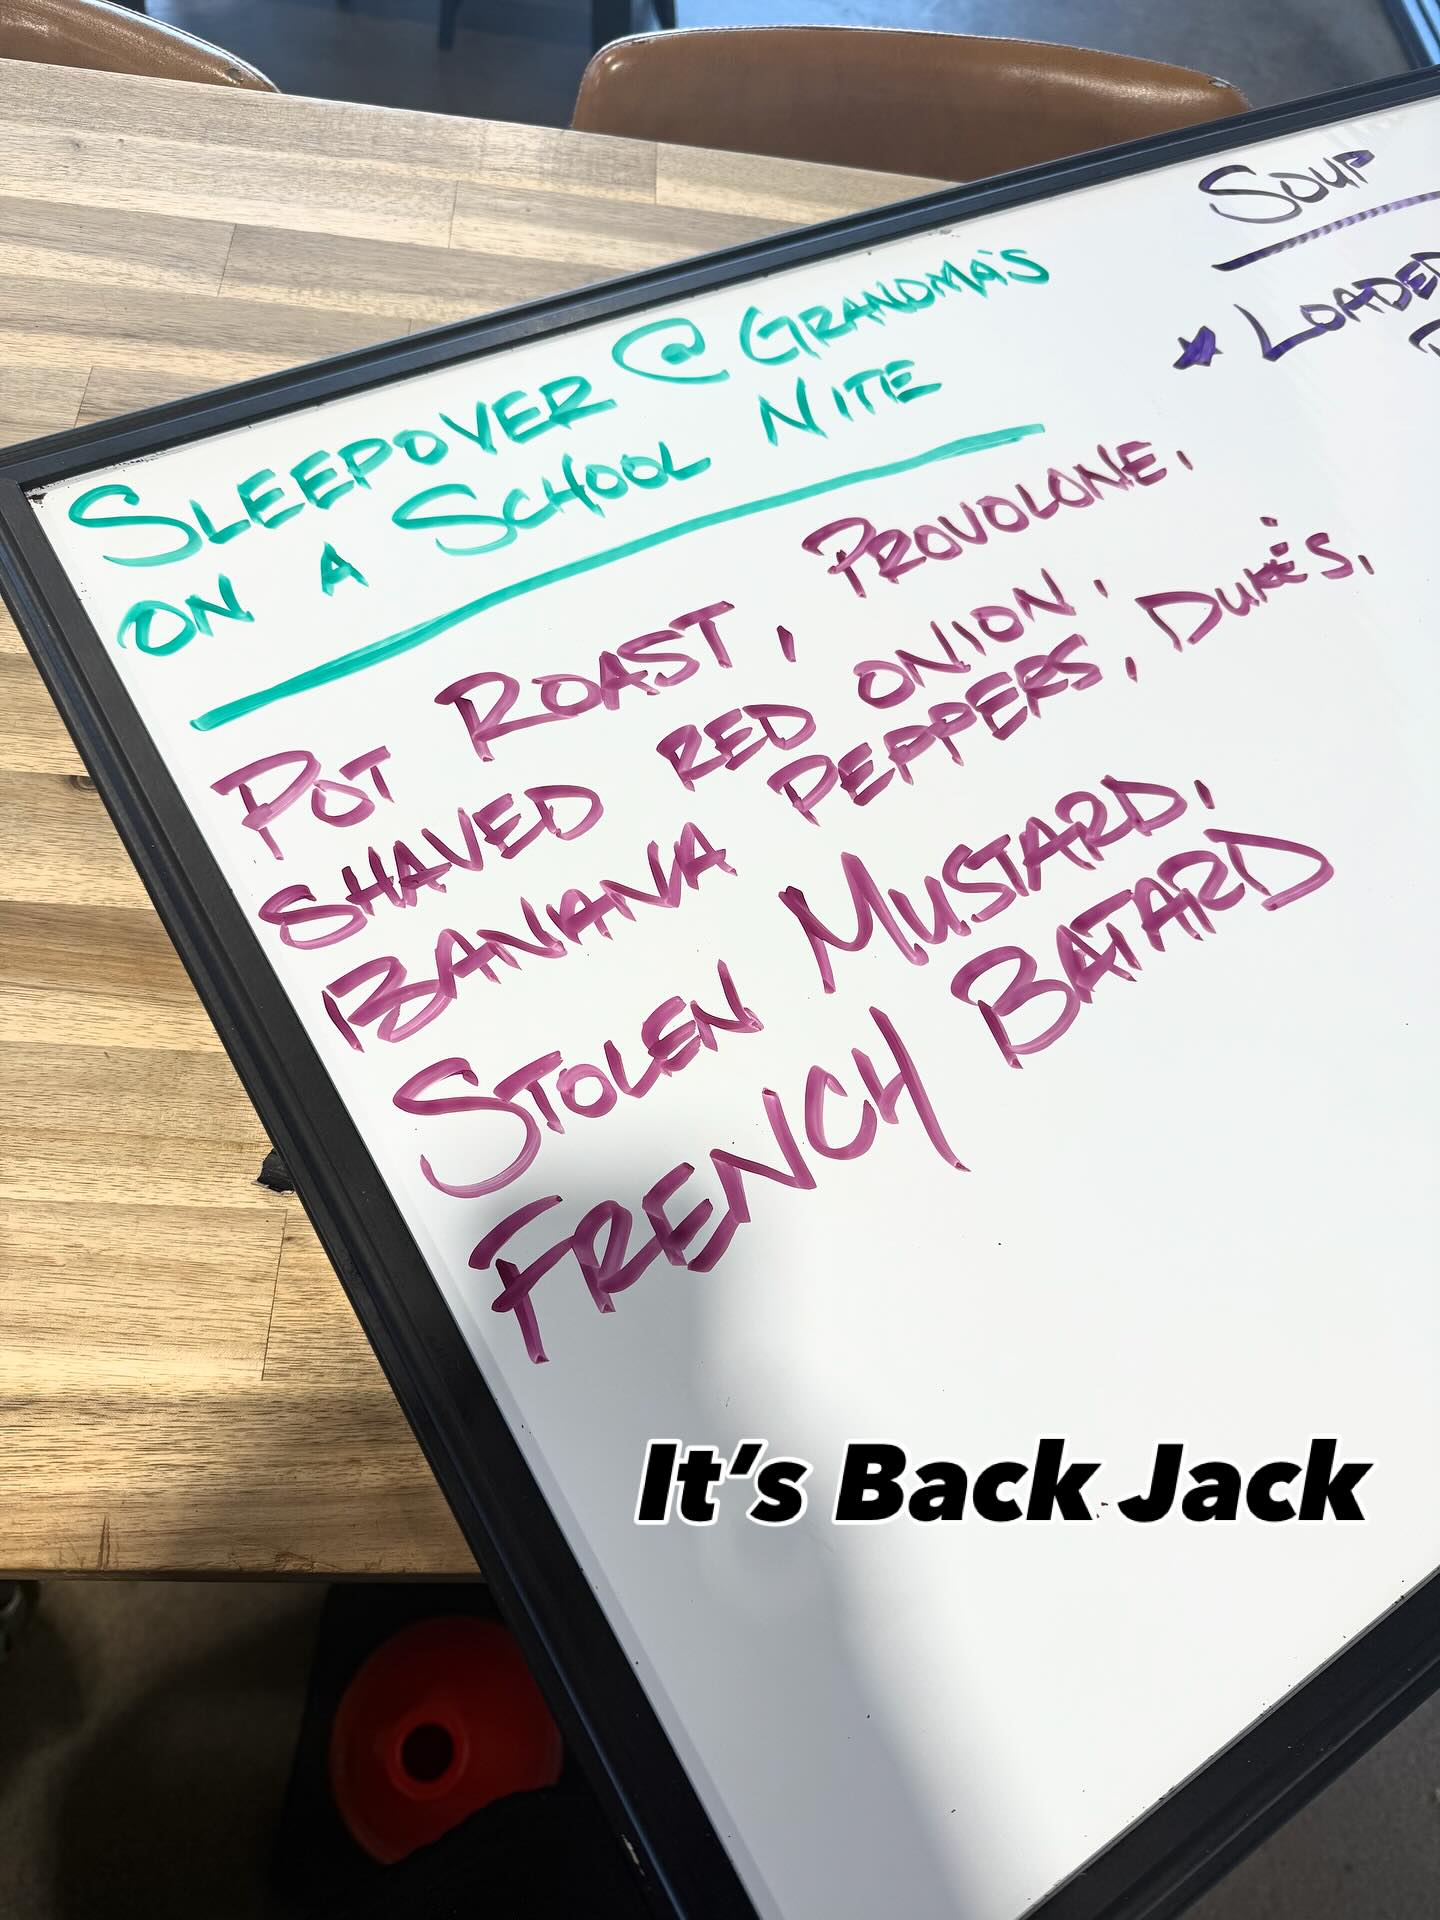 SLEEPOVER @ GRANDMA'S
ON A SCHOOL NITE
POT ROAST, PROVOLONE,
SHAVED RED ONION,
BANANA PEPPERS, DUKE'S,
STOLEN MUSTARD,
FRENCH BATARD
SOUP
LOADED
It's Back Jack